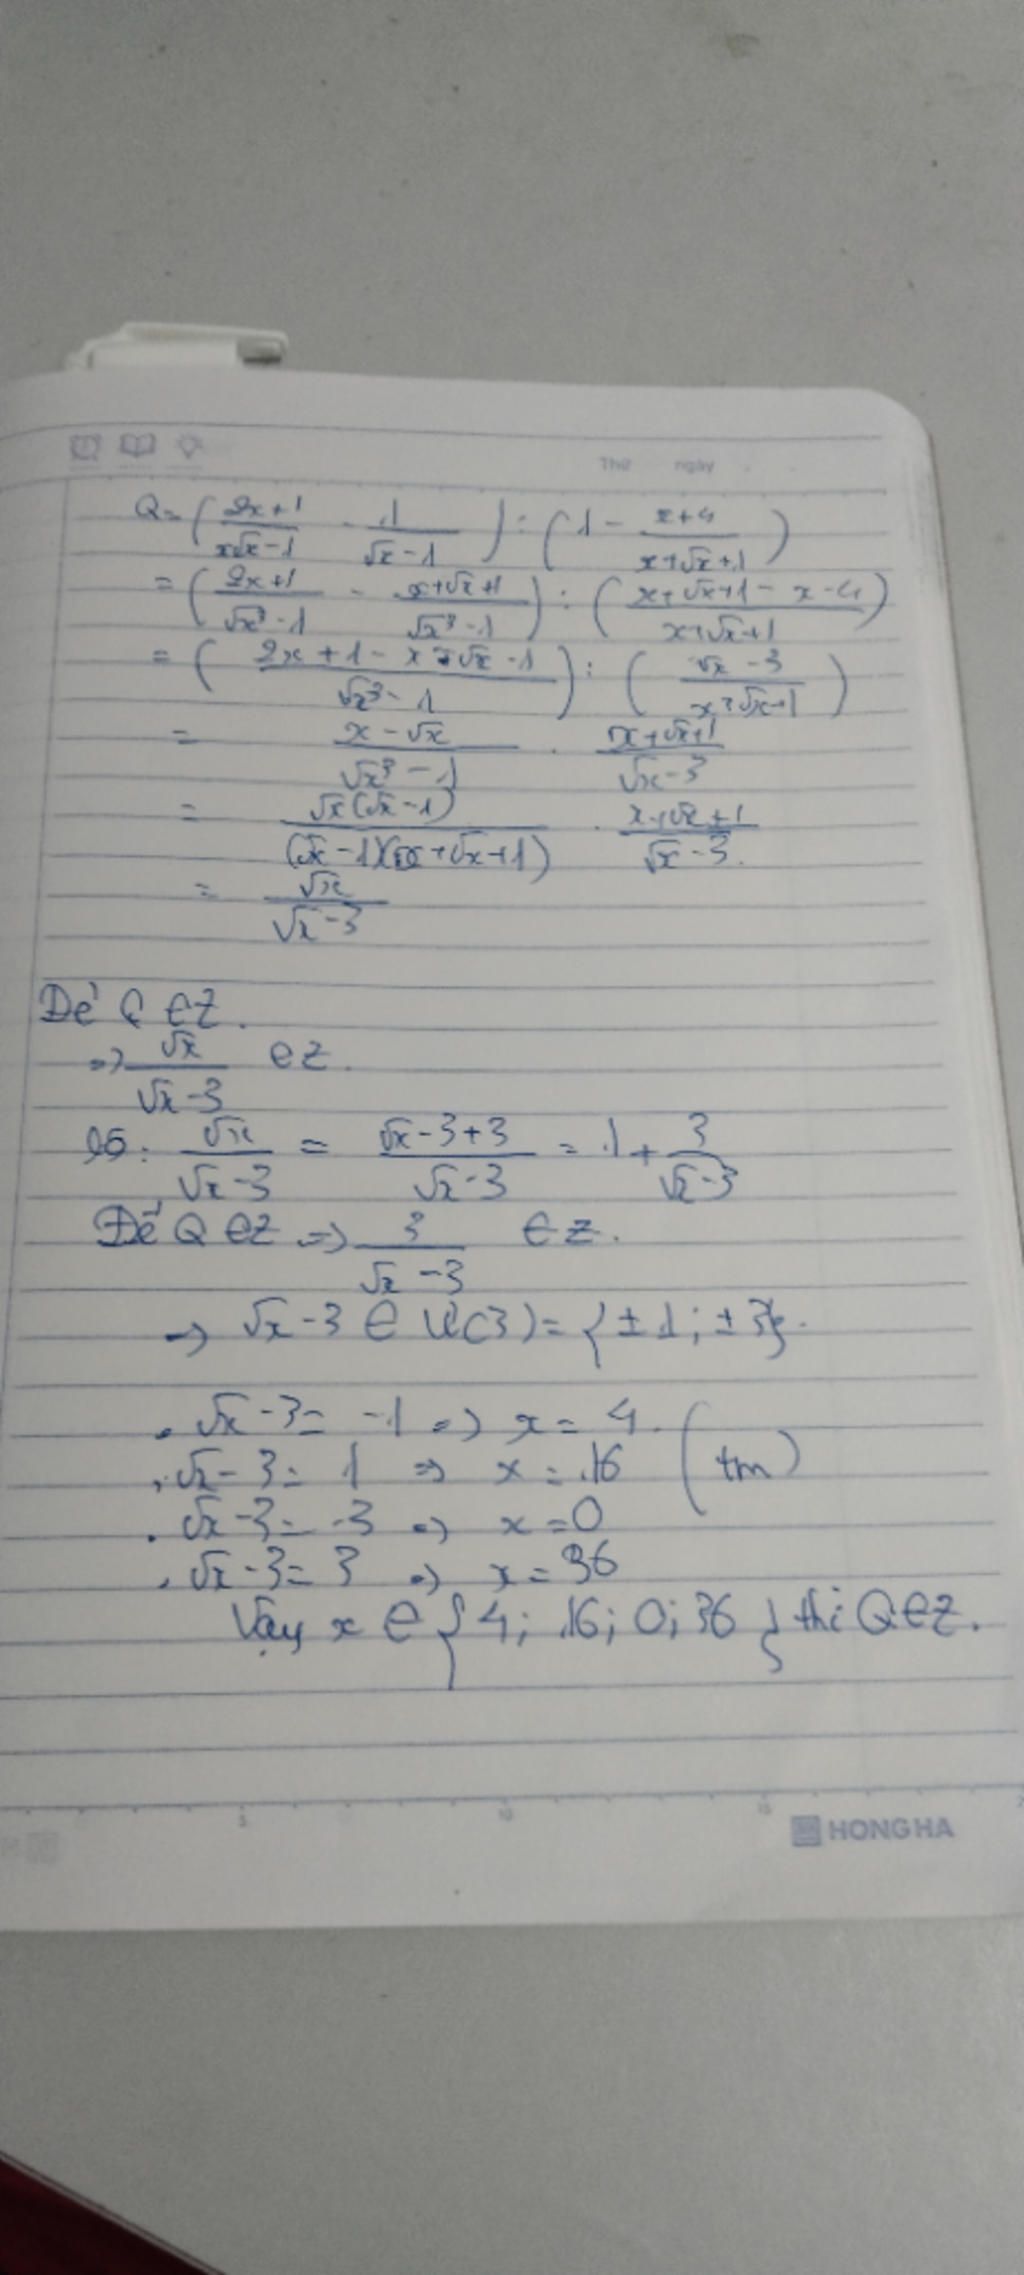 Thứ ngày
Q = (2x+1/x√x-1 - 1/√x-1) : (1 - x+4/x+√x+1)
= (2x+1/√x³-1 - x+√x+1/√x³-1) : (x+√x+1-x-4/x+√x+1)
= (2x+1-x-√x-1/√x³-1) : (√x-3/x+√x+1)
= x-√x/√x³-1 . x+√x+1/√x-3
= √x(√x-1)/(√x-1)(x+√x+1) . x+√x+1/√x-3.
= √x/√x-3
Để Q ∈ Z.
=> √x/√x-3 ∈ Z.
√x/√x-3 = √x-3+3/√x-3 = 1 + 3/√x-3
Để Q ∈ Z => 3/√x-3 ∈ Z.
=> √x-3 ∈ Ư(3) = {±1; ±3}.
. √x-3 = -1 => x = 4.
. √x-3 = 1 => x = 16 (tm)
. √x-3 = -3 => x = 0
. √x-3 = 3 => x = 36
Vậy x ∈ {4; 16; 0; 36} thì Q ∈ Z.
5 10 15
HONG HA